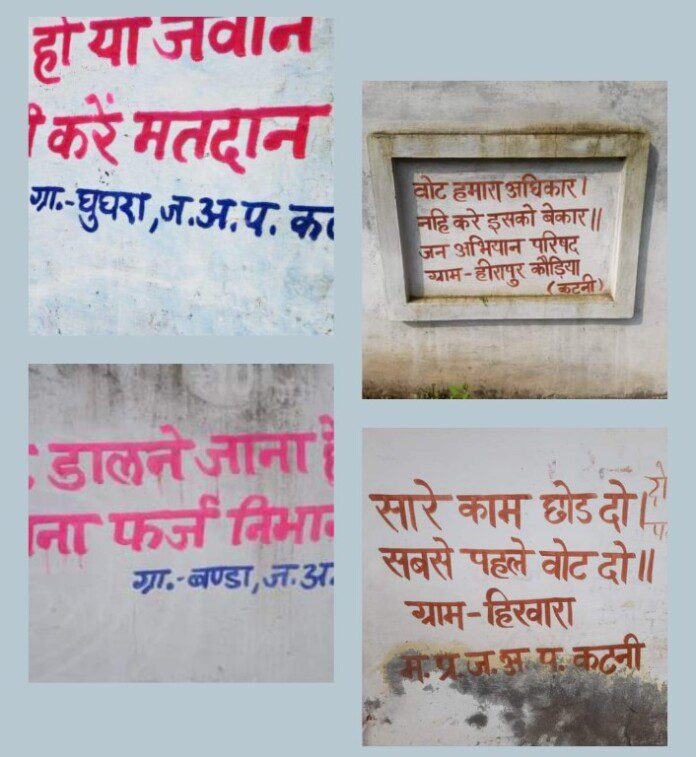 हो या जवान
करें मतदान
ग्रा.-घुघरा, ज.अ.प. क
वोट हमारा अधिकार।
नहि करे इसको बेकार॥
जन अभियान परिषद
ग्राम-हीरापुर कौड़िया
(कटनी)
डालने जाना है
ना फर्ज निभा
ग्रा.-बण्डा, ज.अ.
सारे काम छोड दो।
सबसे पहले वोट दो॥
ग्राम-हिरवारा
म.प्र.ज.अ.प. कटनी